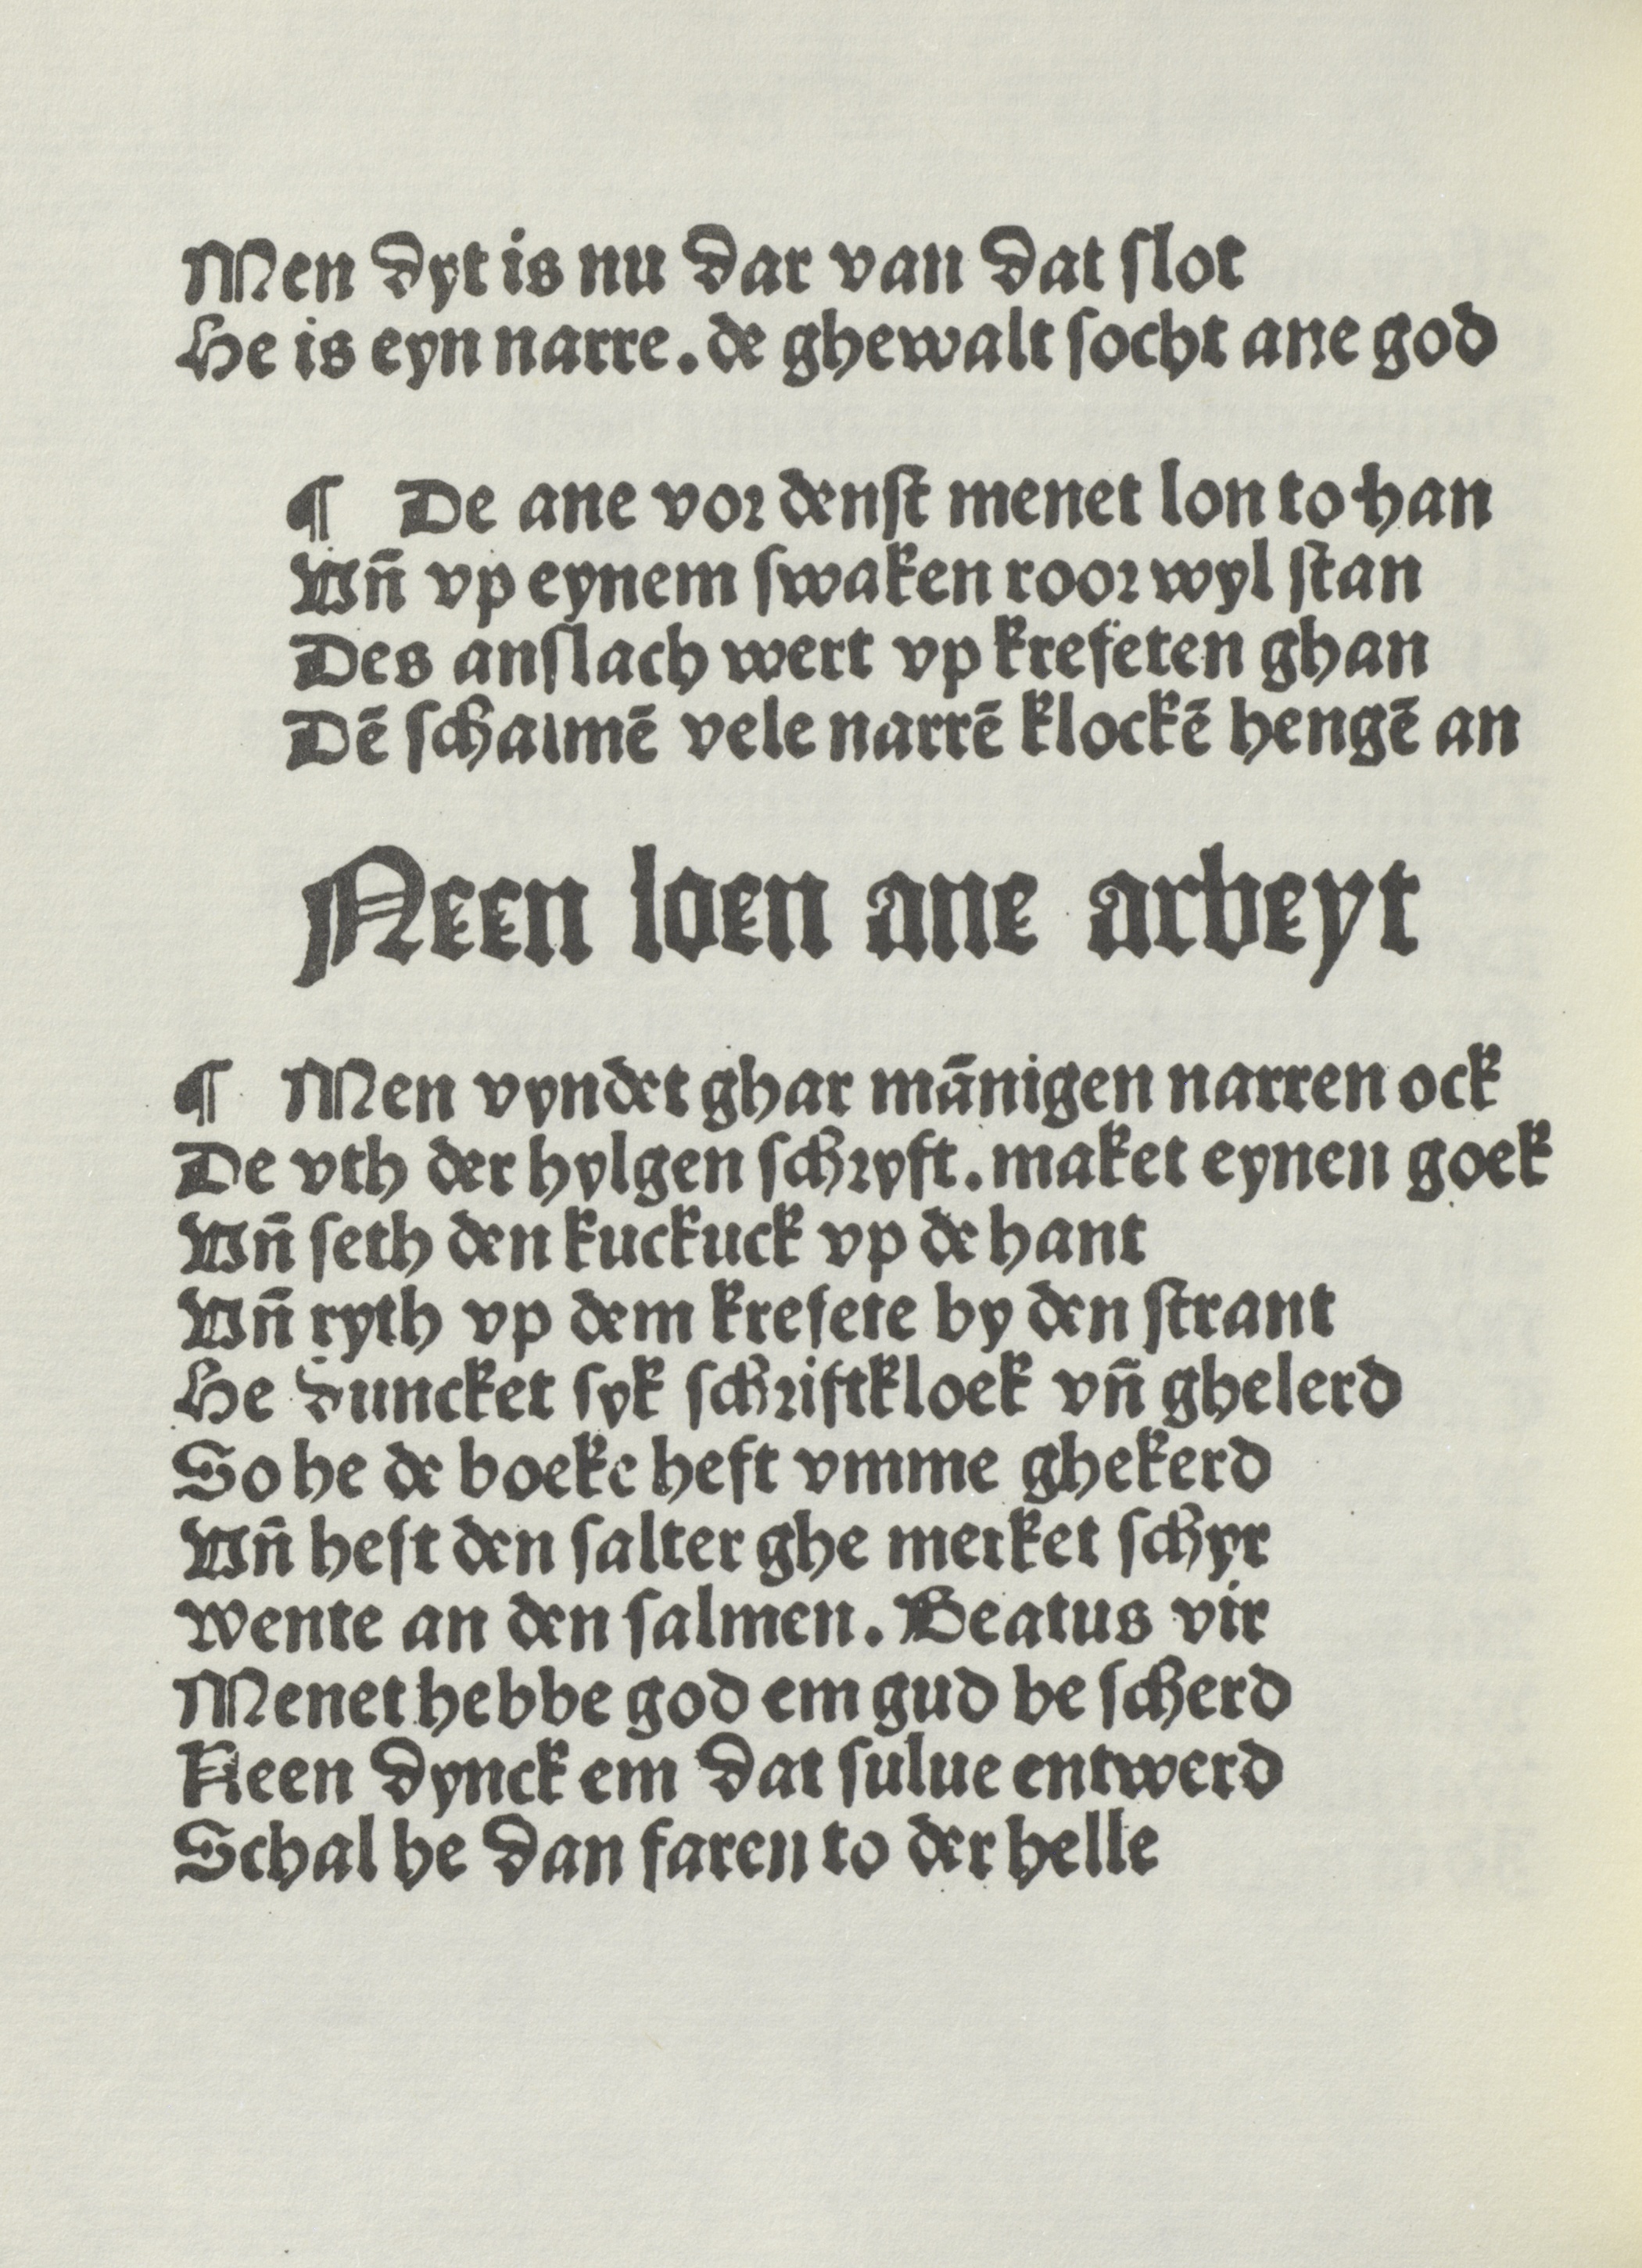 Men dyt is nu dar van dat ſlot
He is eyn narre. de ghewalt ſocht ane god
¶ De ane vor denſt menet lon to han
Vn̄ vp eynem ſwaken roor wyl ſtan
Des anſlach wert vp krefeten ghan
Dē ſchalmē vele narrē klockē hengē an
Neen loen ane arbeyt
¶ Men vyndet ghar mānigen narren ock
De vth der hylgen ſchryft. maket eynen goek
Vn̄ ſeth den kuckuck vp de hant
Vn̄ ryth vp dem krefete by den ſtrant
He duncket ſyk ſchriftkloek vn̄ ghelerd
So he de boeke heft vmme ghekerd
Vn̄ heft den ſalter ghe merket ſchyr
wente an den ſalmen. Beatus vir
Menet hebbe god em gud be ſcherd
Neen dynck em dat ſulue entwerd
Schal he dan faren to der helle